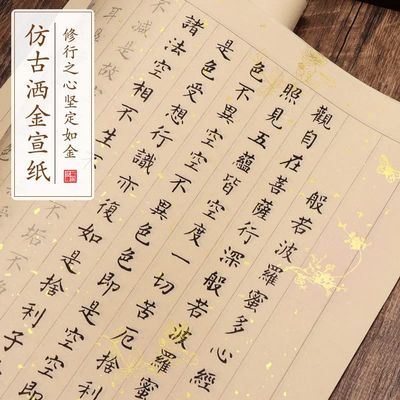 仿古洒金宣纸
修行之心坚定如金
般若波羅蜜多心經
觀自在菩薩行深般若波羅蜜
照見五蘊皆空度一切苦厄捨利
色不異空空不異色色即是空空即
是色受想行識亦復如是捨利子
諸法空相不生不
不減是故